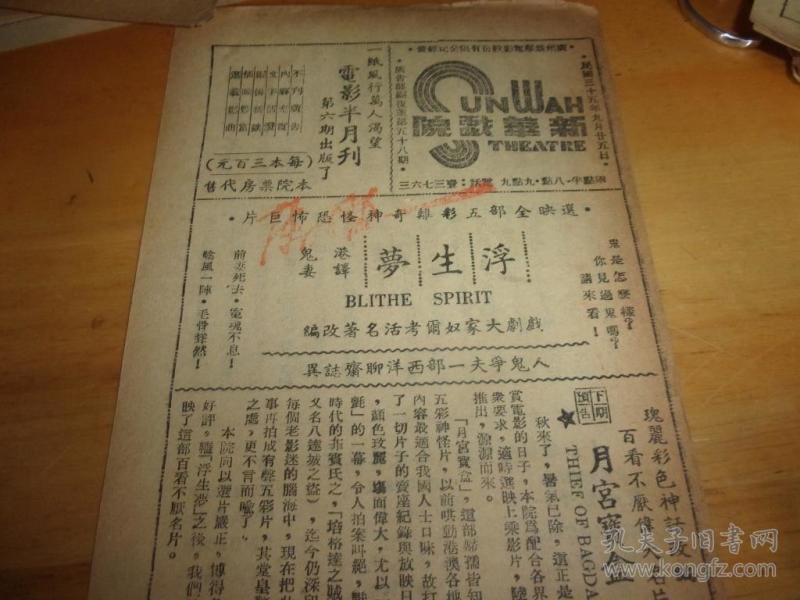 民國三十五年九月廿五日
SUN WAH
新華戲院
THEATRE
復業第五十八期
一紙風行萬人渴望
電影半月刊
第六期出版了
（每本三百元）
本院票房代售
選映全部五彩離奇神怪恐怖巨片
鬼是怎麼樣？
你見過鬼嗎？
請來看！
浮生夢
港譯
鬼妻
BLITHE SPIRIT
前妻死去·靈魂不息！
陰風一陣·毛骨悚然！
戲劇大家奴爾考活名著改編
人鬼爭夫一部西洋聊齋誌異
瑰麗彩色神話
百看不厭
下期預告
月宮寶
THIEF OF BAGDA
秋來了，暑氣已除，這正是
賞電影的日子，本院為配合各界
衆要求，適時選映上乘影片，陸
推出，源源而來。
「月宮寶盒」，這部婦孺皆知
五彩神怪片，以前哄動港澳各地
內容最適合我國人士口味，故打
了一切片子的賣座紀錄與放映日
，顏色玫麗，場面偉大，尤以
氈」的一幕，令人拍案叫絕，
時代的非賓氏之，「培格達之賊
又名八達城之盜），迄今仍深
每個老影迷的腦海中，現在把
事再拍成有聲五彩片，其堂皇
之處，更不言而喻了。
本院向以選片嚴正，博得
好評，繼「浮生夢」之後，我們
映了這部百看不厭名片。
孔夫子旧书网
kongfz.com